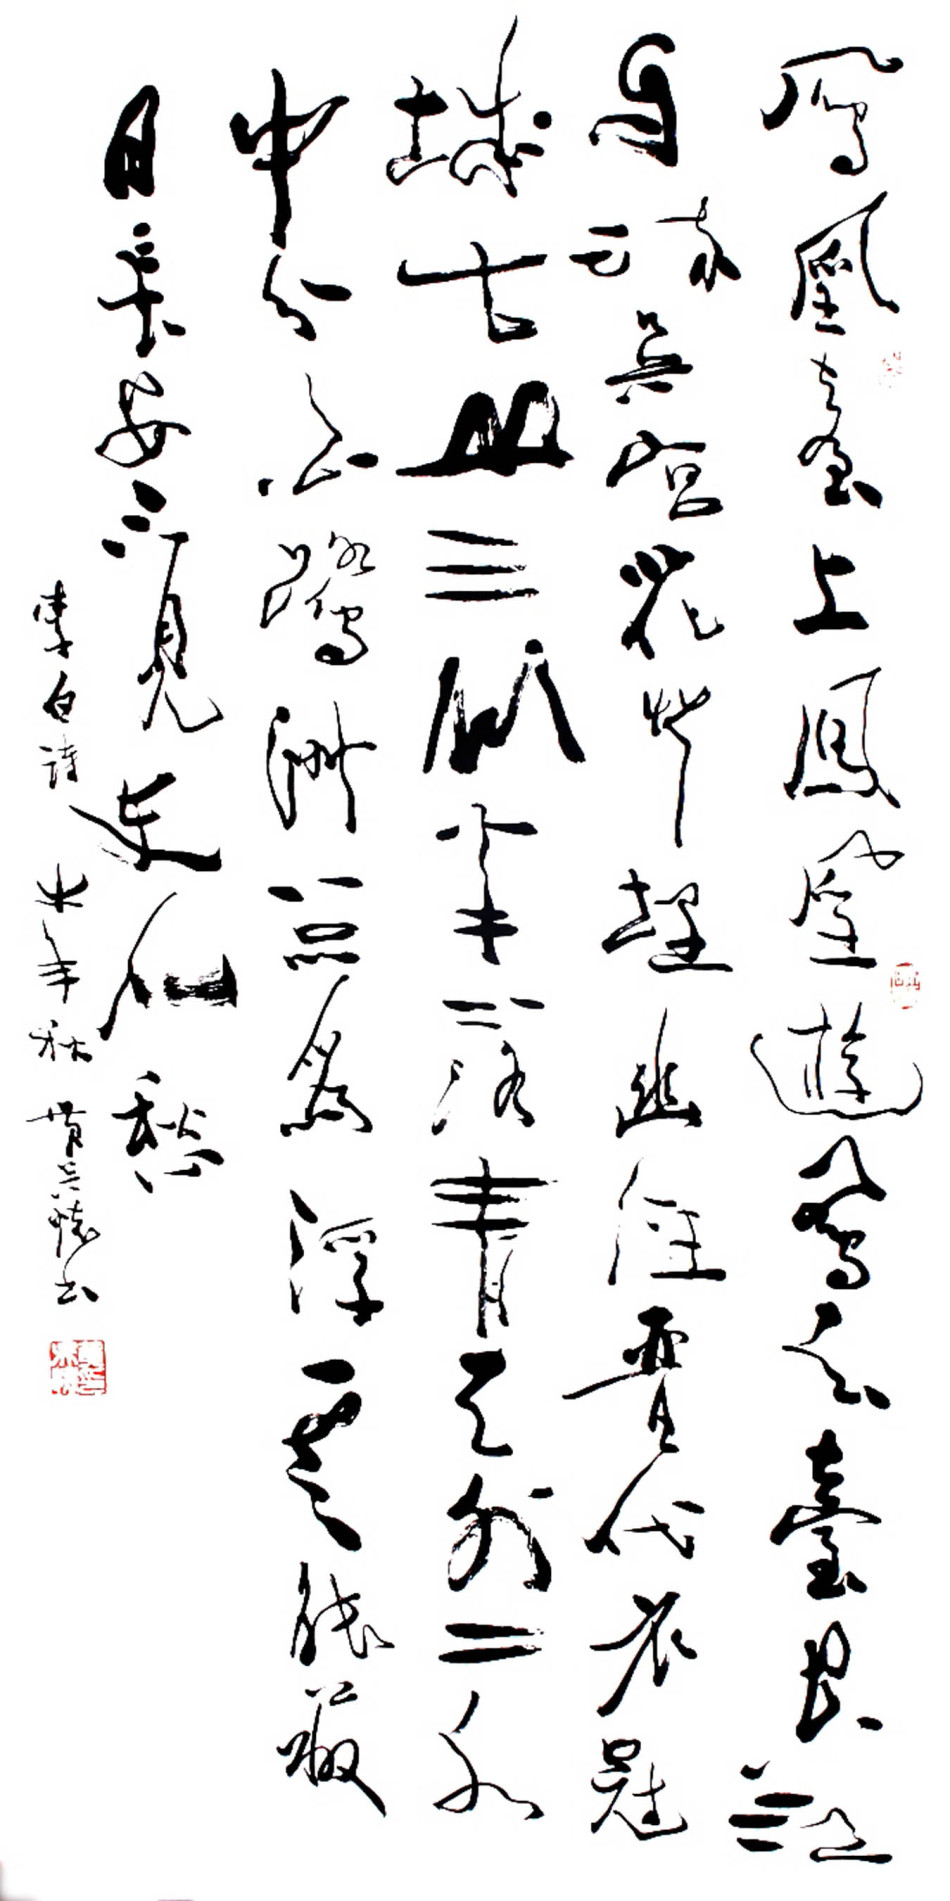 鳳凰臺上鳳凰遊鳳去臺空江
自流吳宮花草埋幽徑晉代衣冠
成古丘三山半落青天外二水
中分白鷺洲總為浮雲能蔽
日長安不見使人愁
李白詩 年秋 黃懷書